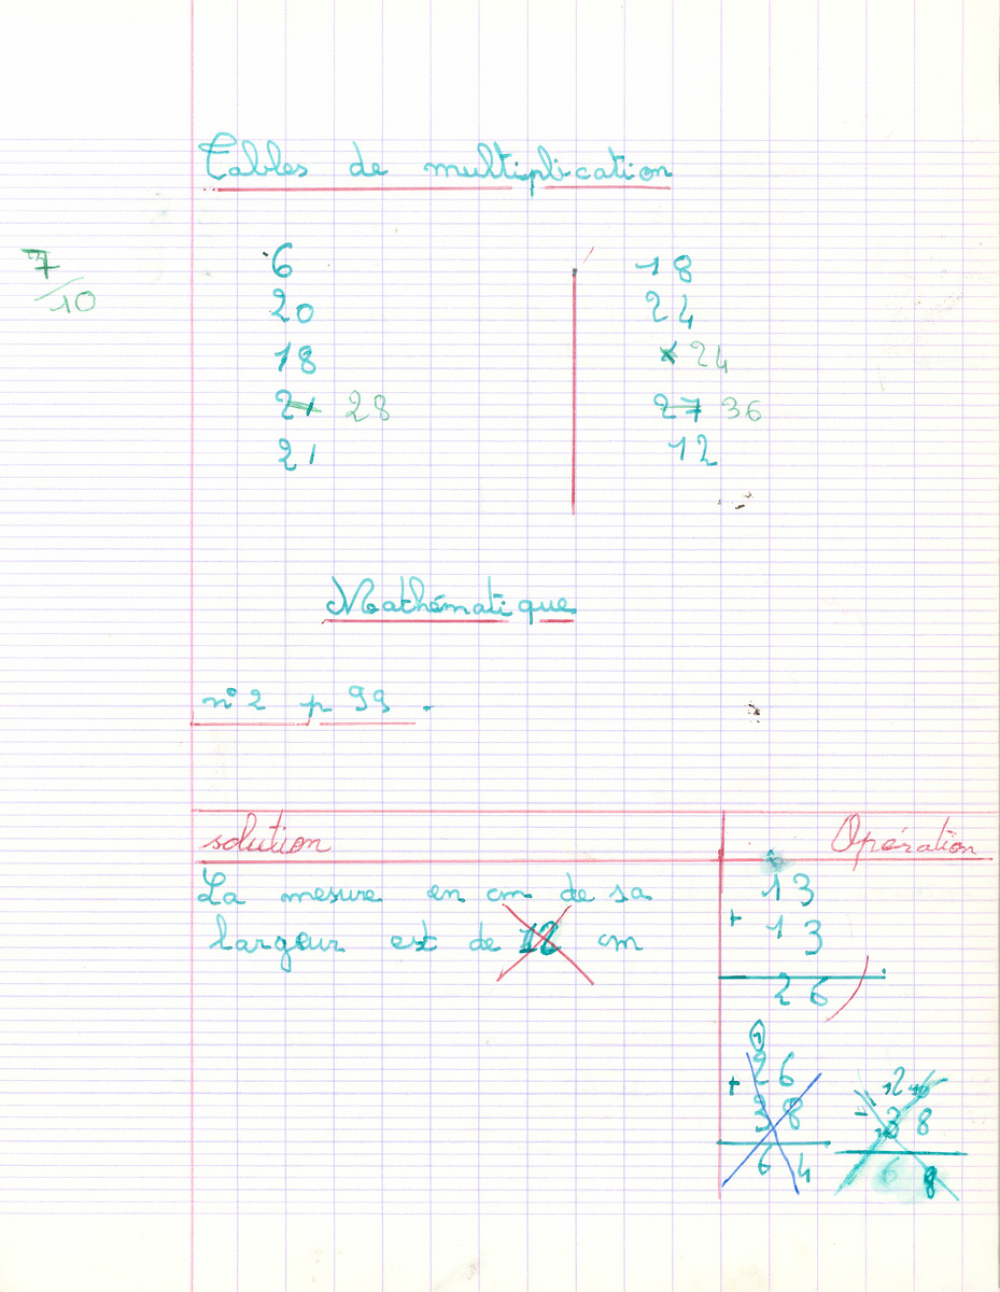 Tables de multiplication
7/10
6
20
18
21 28
21
18
24
x 24
27 36
12
Mathématique
n° 2 p 99.
solution
Opération
La mesure en cm de sa
largeur est de 12 cm
13
+ 13
26
1
26
+ 38
64
38
8